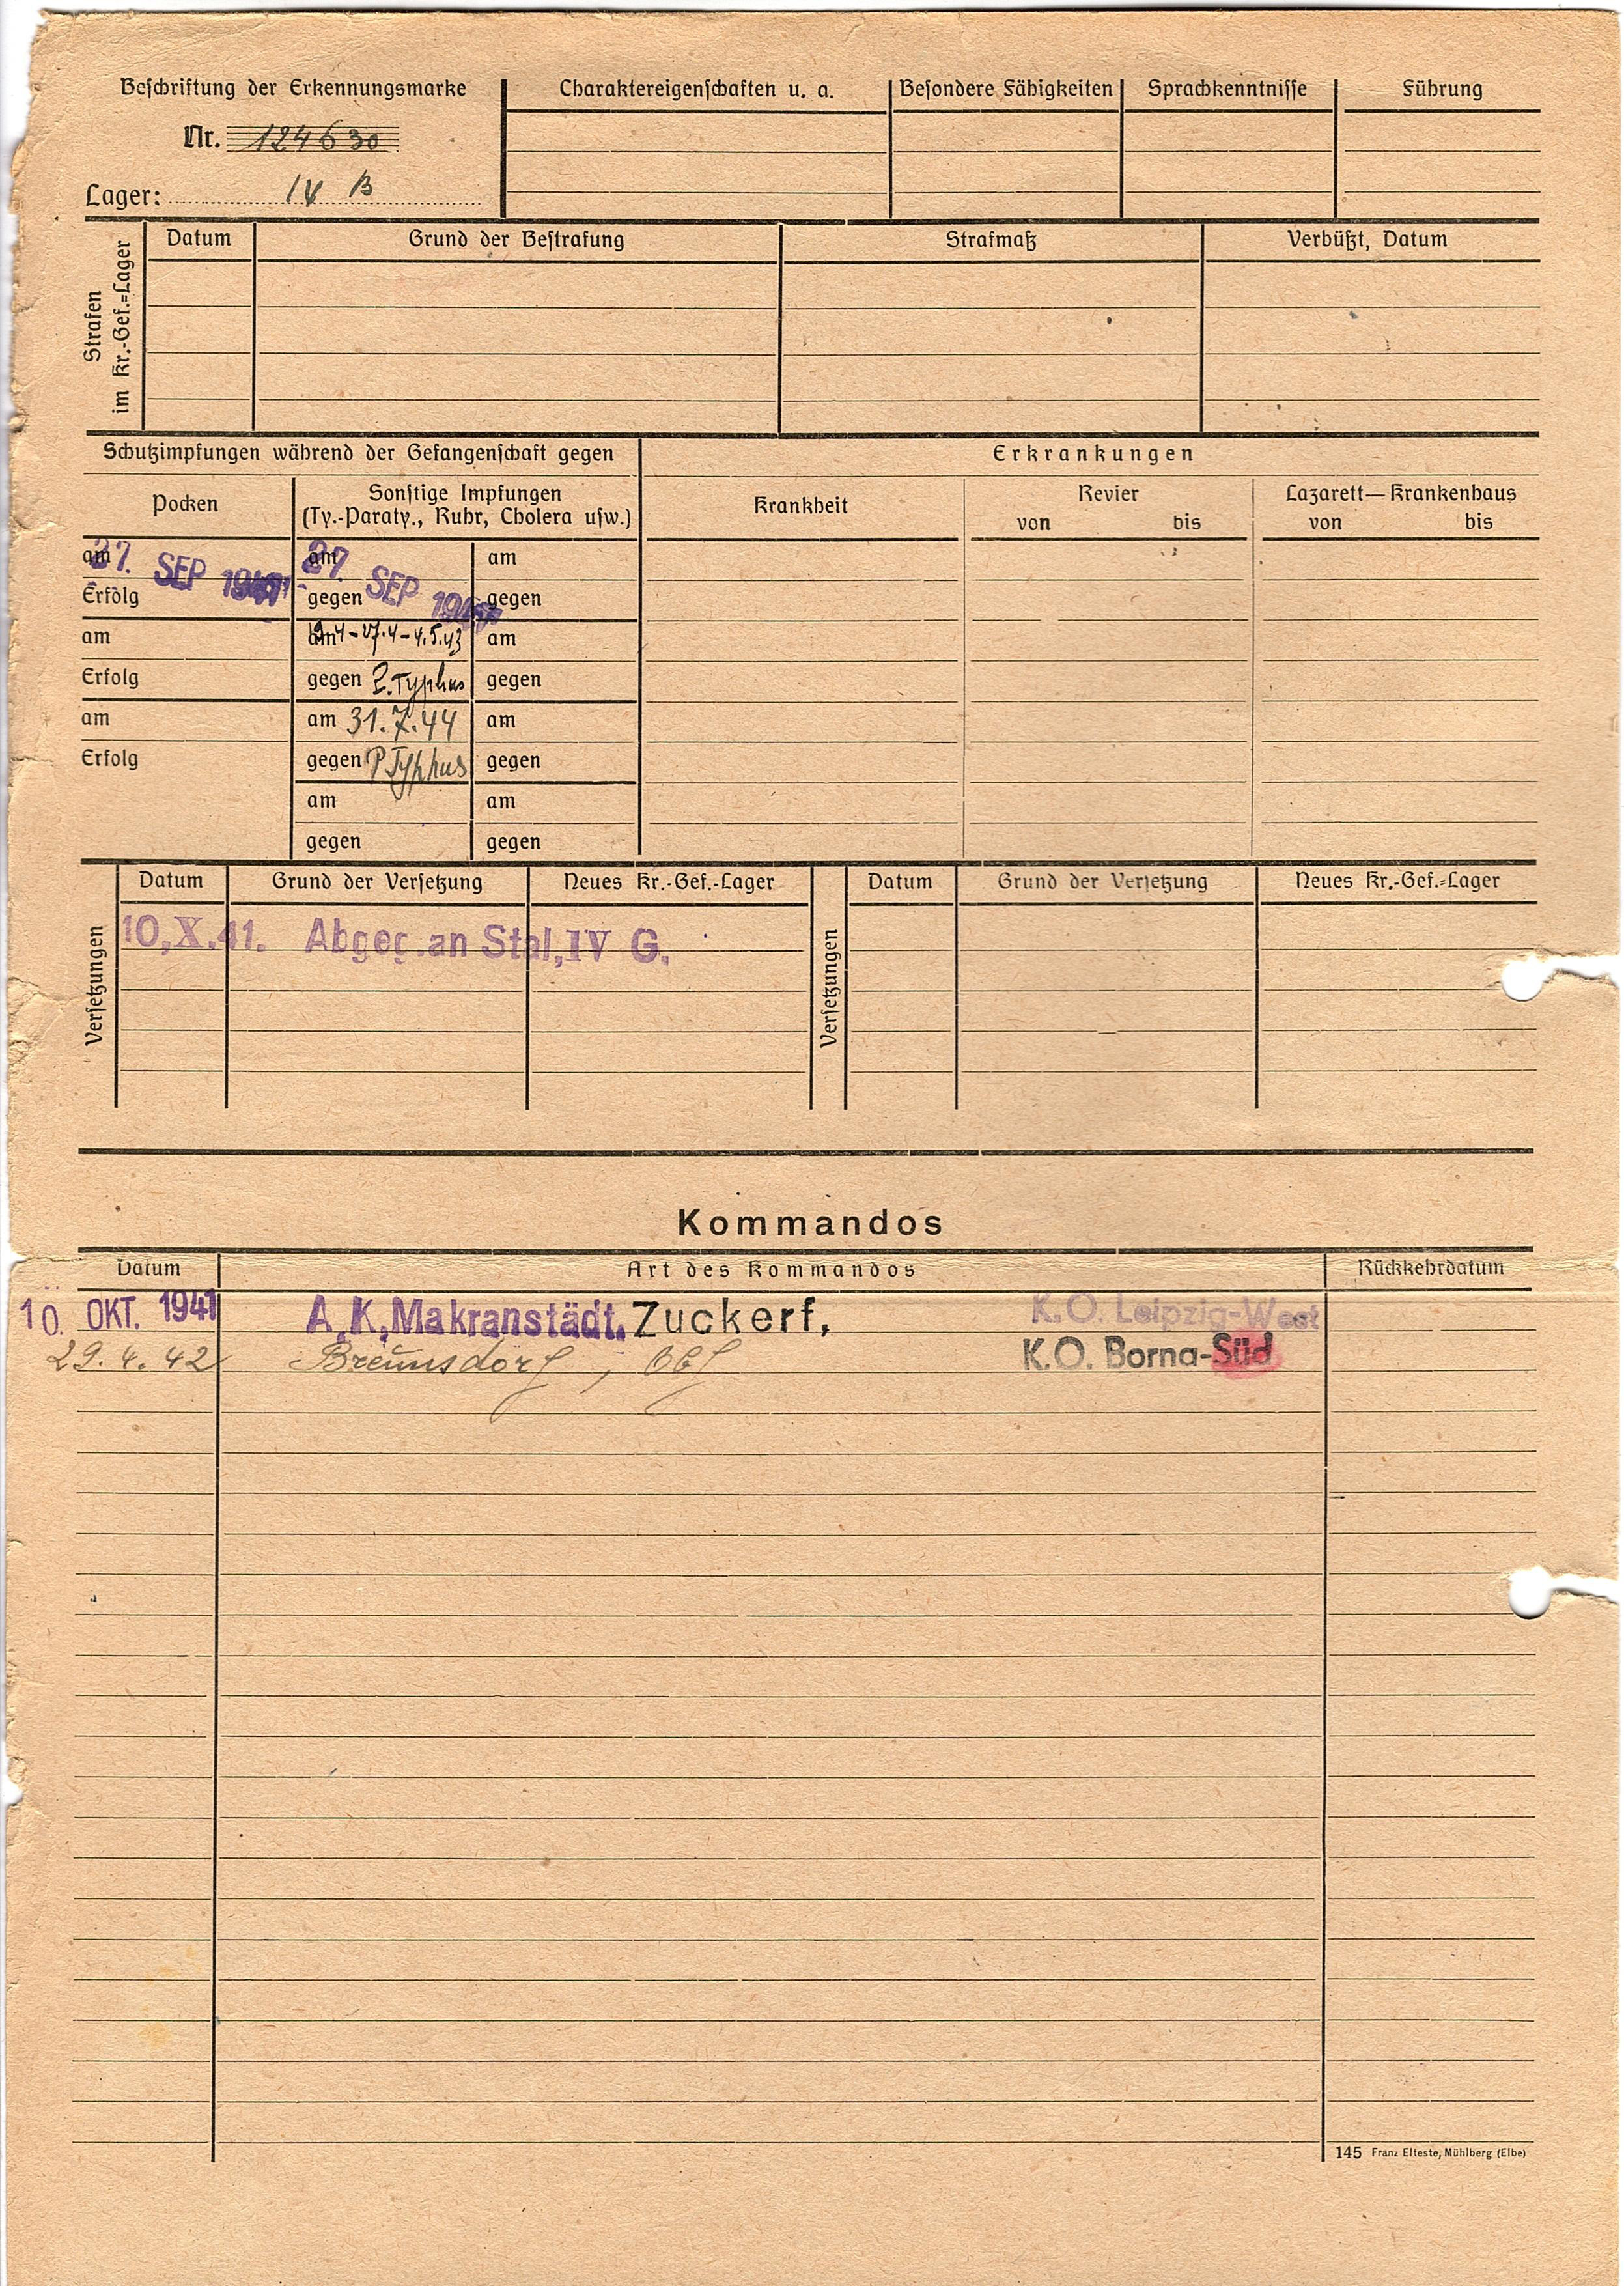 Beschriftung der Erkennungsmarke
Nr. 124630
Lager: IV B
Charaktereigenschaften u. a.
Besondere Fähigkeiten
Sprachkenntnisse
Führung
Strafen im Kr.-Gef.=Lager
Datum
Grund der Bestrafung
Strafmaß
Verbüßt, Datum
Schutzimpfungen während der Gefangenschaft gegen
Erkrankungen
Pocken
Sonstige Impfungen
(Ty.-Paraty., Ruhr, Cholera usw.)
Krankheit
Revier
von bis
Lazarett—Krankenhaus
von bis
am 27. SEP 1941
am 27. SEP
am
Erfolg
gegen
gegen
am
am 19.4-27.4-4.5.43
am
Erfolg
gegen P. Typhus
gegen
am
am 31.7.44
am
Erfolg
gegen P Typhus
gegen
am
am
gegen
gegen
Versetzungen
Datum
Grund der Versetzung
Neues Kr.-Gef.-Lager
Versetzungen
Datum
Grund der Versetzung
Neues Kr.-Gef.=Lager
10.X.41. Abgeg.an Stal,IV G.
Kommandos
Datum
Art des Kommandos
Rückkehrdatum
10. OKT. 1941 A.K,Makranstädt. Zuckerf, K.O. Leipzig-West
29.4.42 Breunsdorf, K.O. Borna-Süd
145 Franz Elteste, Mühlberg (Elbe)